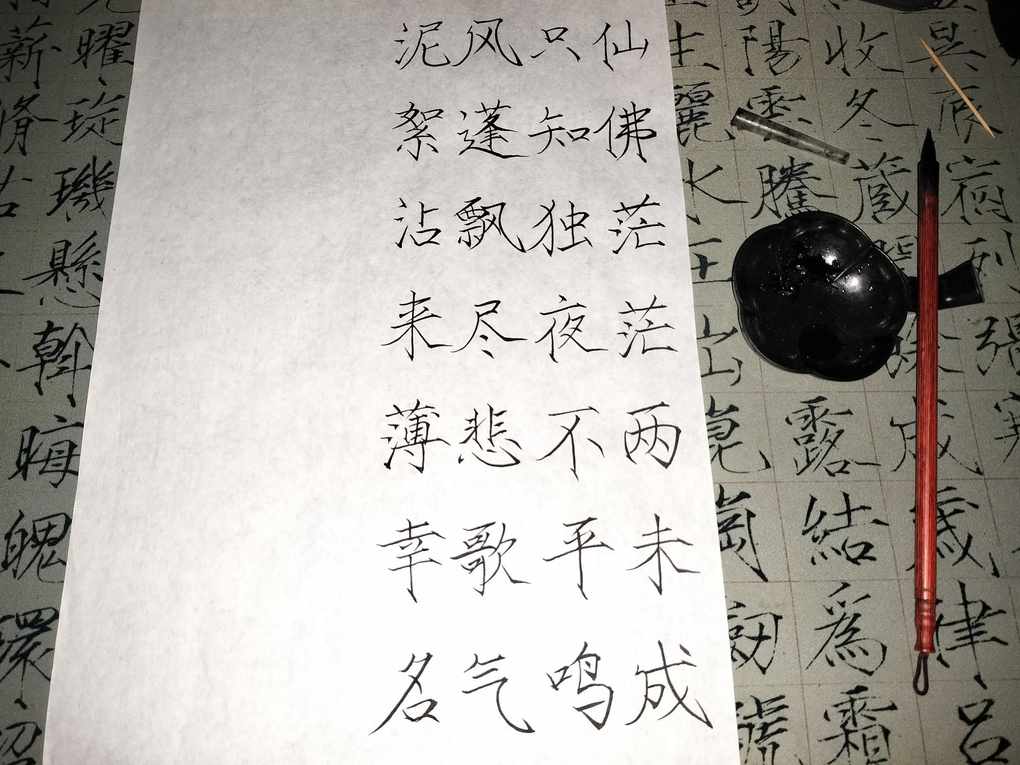 昃辰宿列張寒
收冬藏閏餘成歲律呂
陽雲騰露結爲霜
生麗水玉出崑崗劍號
仙佛茫茫两未成
只知独夜不平鸣
风蓬飘尽悲歌气
泥絮沾来薄幸名
曜璇璣懸斡晦魄環照
薪脩祜